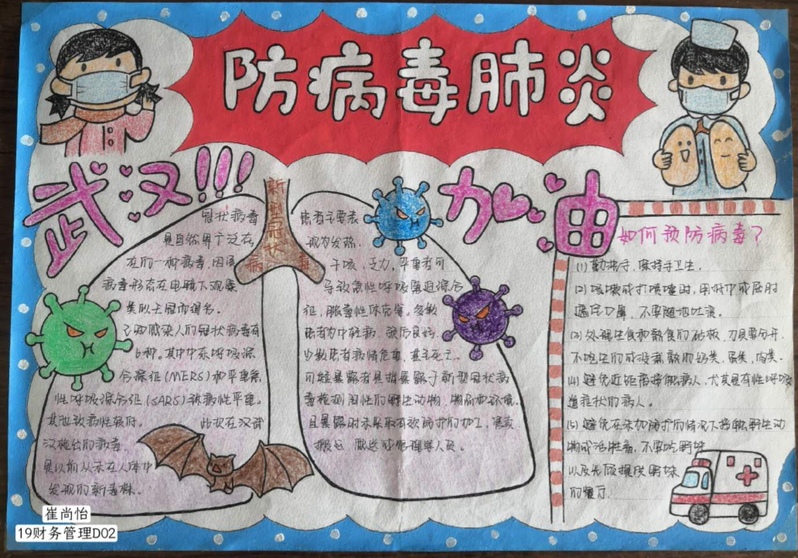 防病毒肺炎
武汉!!!
加油
新型冠状
病毒
冠状病毒
是自然界广泛存
在的一种病毒,因该
病毒形态在电镜下观察
类似王冠而得名。
己知感染人的冠状病毒有
6种。其中中东呼吸综
合征(MERS)和严重急
性呼吸综合征(SARS)致病性严重。
其他致病性较轻。
此次在武
汉
的病毒
是以前从未在人体中
发现的新毒株。
患者主要表
现为发热、
干咳、乏力,严重者可
导致急性呼吸窘迫综合
征,脓毒性休克等。多数
患者为中轻症,预后良好,
少数患者病情危重,甚至死亡。
如何预防病毒?
(1)勤洗手,保持手卫生。
(2)咳嗽或打喷嚏时,用纸巾或屈肘
遮住口鼻,不要随地吐痰。
(3)处理生食和熟食的砧板,刀具要分开,
(4)避免近距离接触病人,尤其是有呼吸
道症状的病人。
(5)避免在未加防护的情况下接触野生动
物或
不要吃野味
的餐厅
崔尚怡
19财务管理D02